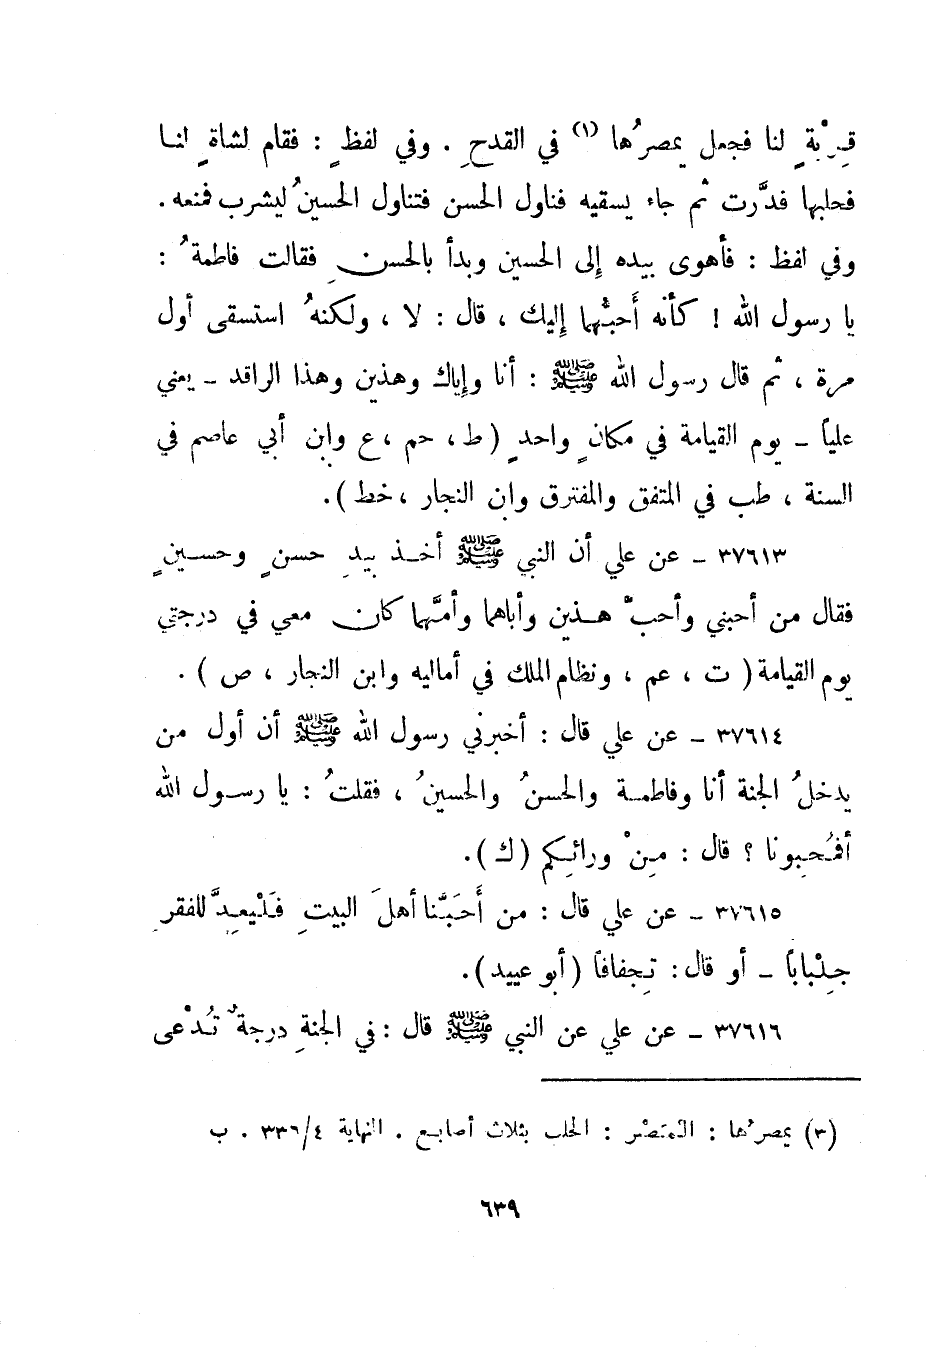 قِربةٍ لنا فجعل يمصرُها (١) في القدحِ . وفي لفظٍ : فقام لشاةٍ لنا
فحلبها فدرَّت ثم جاء يسقيه فناول الحسن فتناول الحسينُ ليشرب فمنعه .
وفي لفظ : فأهوى بيده إلى الحسين وبدأ بالحسنِ فقالت فاطمةُ :
يا رسول الله ! كأنه أَحبُّهما إليك ، قال : لا ، ولكنهُ استسقى أول
مرة ، ثم قال رسول الله ﷺ : أنا وإياك وهذين وهذا الراقد ـ يعني
علياً ـ يوم القيامة في مكانٍ واحدٍ (ط، حم ،ع وابن أبي عاصم في
السنة ، طب في المتفق والمفترق وابن النجار ،خط ).
٣٧٦١٣ ـ عن علي أن النبي ﷺ أخذ بيدِ حسنٍ وحسينٍ
فقال من أحبني وأحبَّ هذين وأباهما وأمَّهما كان معي في درجتي
يوم القيامة ( ت ، عم ، ونظام الملك في أماليه وابن النجار ، ص ) .
٣٧٦١٤ ـ عن علي قال : أخبرني رسول الله ﷺ أن أول من
يدخلُ الجنة أنا وفاطمة والحسنُ والحسينُ ، فقلتُ : يا رسول الله
أفمُحِبونا ؟ قال : مِنْ ورائِكم (ك ).
٣٧٦١٥ ـ عن علي قال : من أَحَبَّنا أهلَ البيتِ فَلْيعِدَّ للفقرِ
جِلْباباً ـ أو قال : تِجفافاً (أبو عبيد ).
٣٧٦١٦ ـ عن علي عن النبي ﷺ قال : في الجنةِ درجةٌ تُدْعى
(٣) يمصرُها : المَصْر : الحلب بثلاث أصابع . النهاية ٣٣٦/٤ . ب
٦٣٩